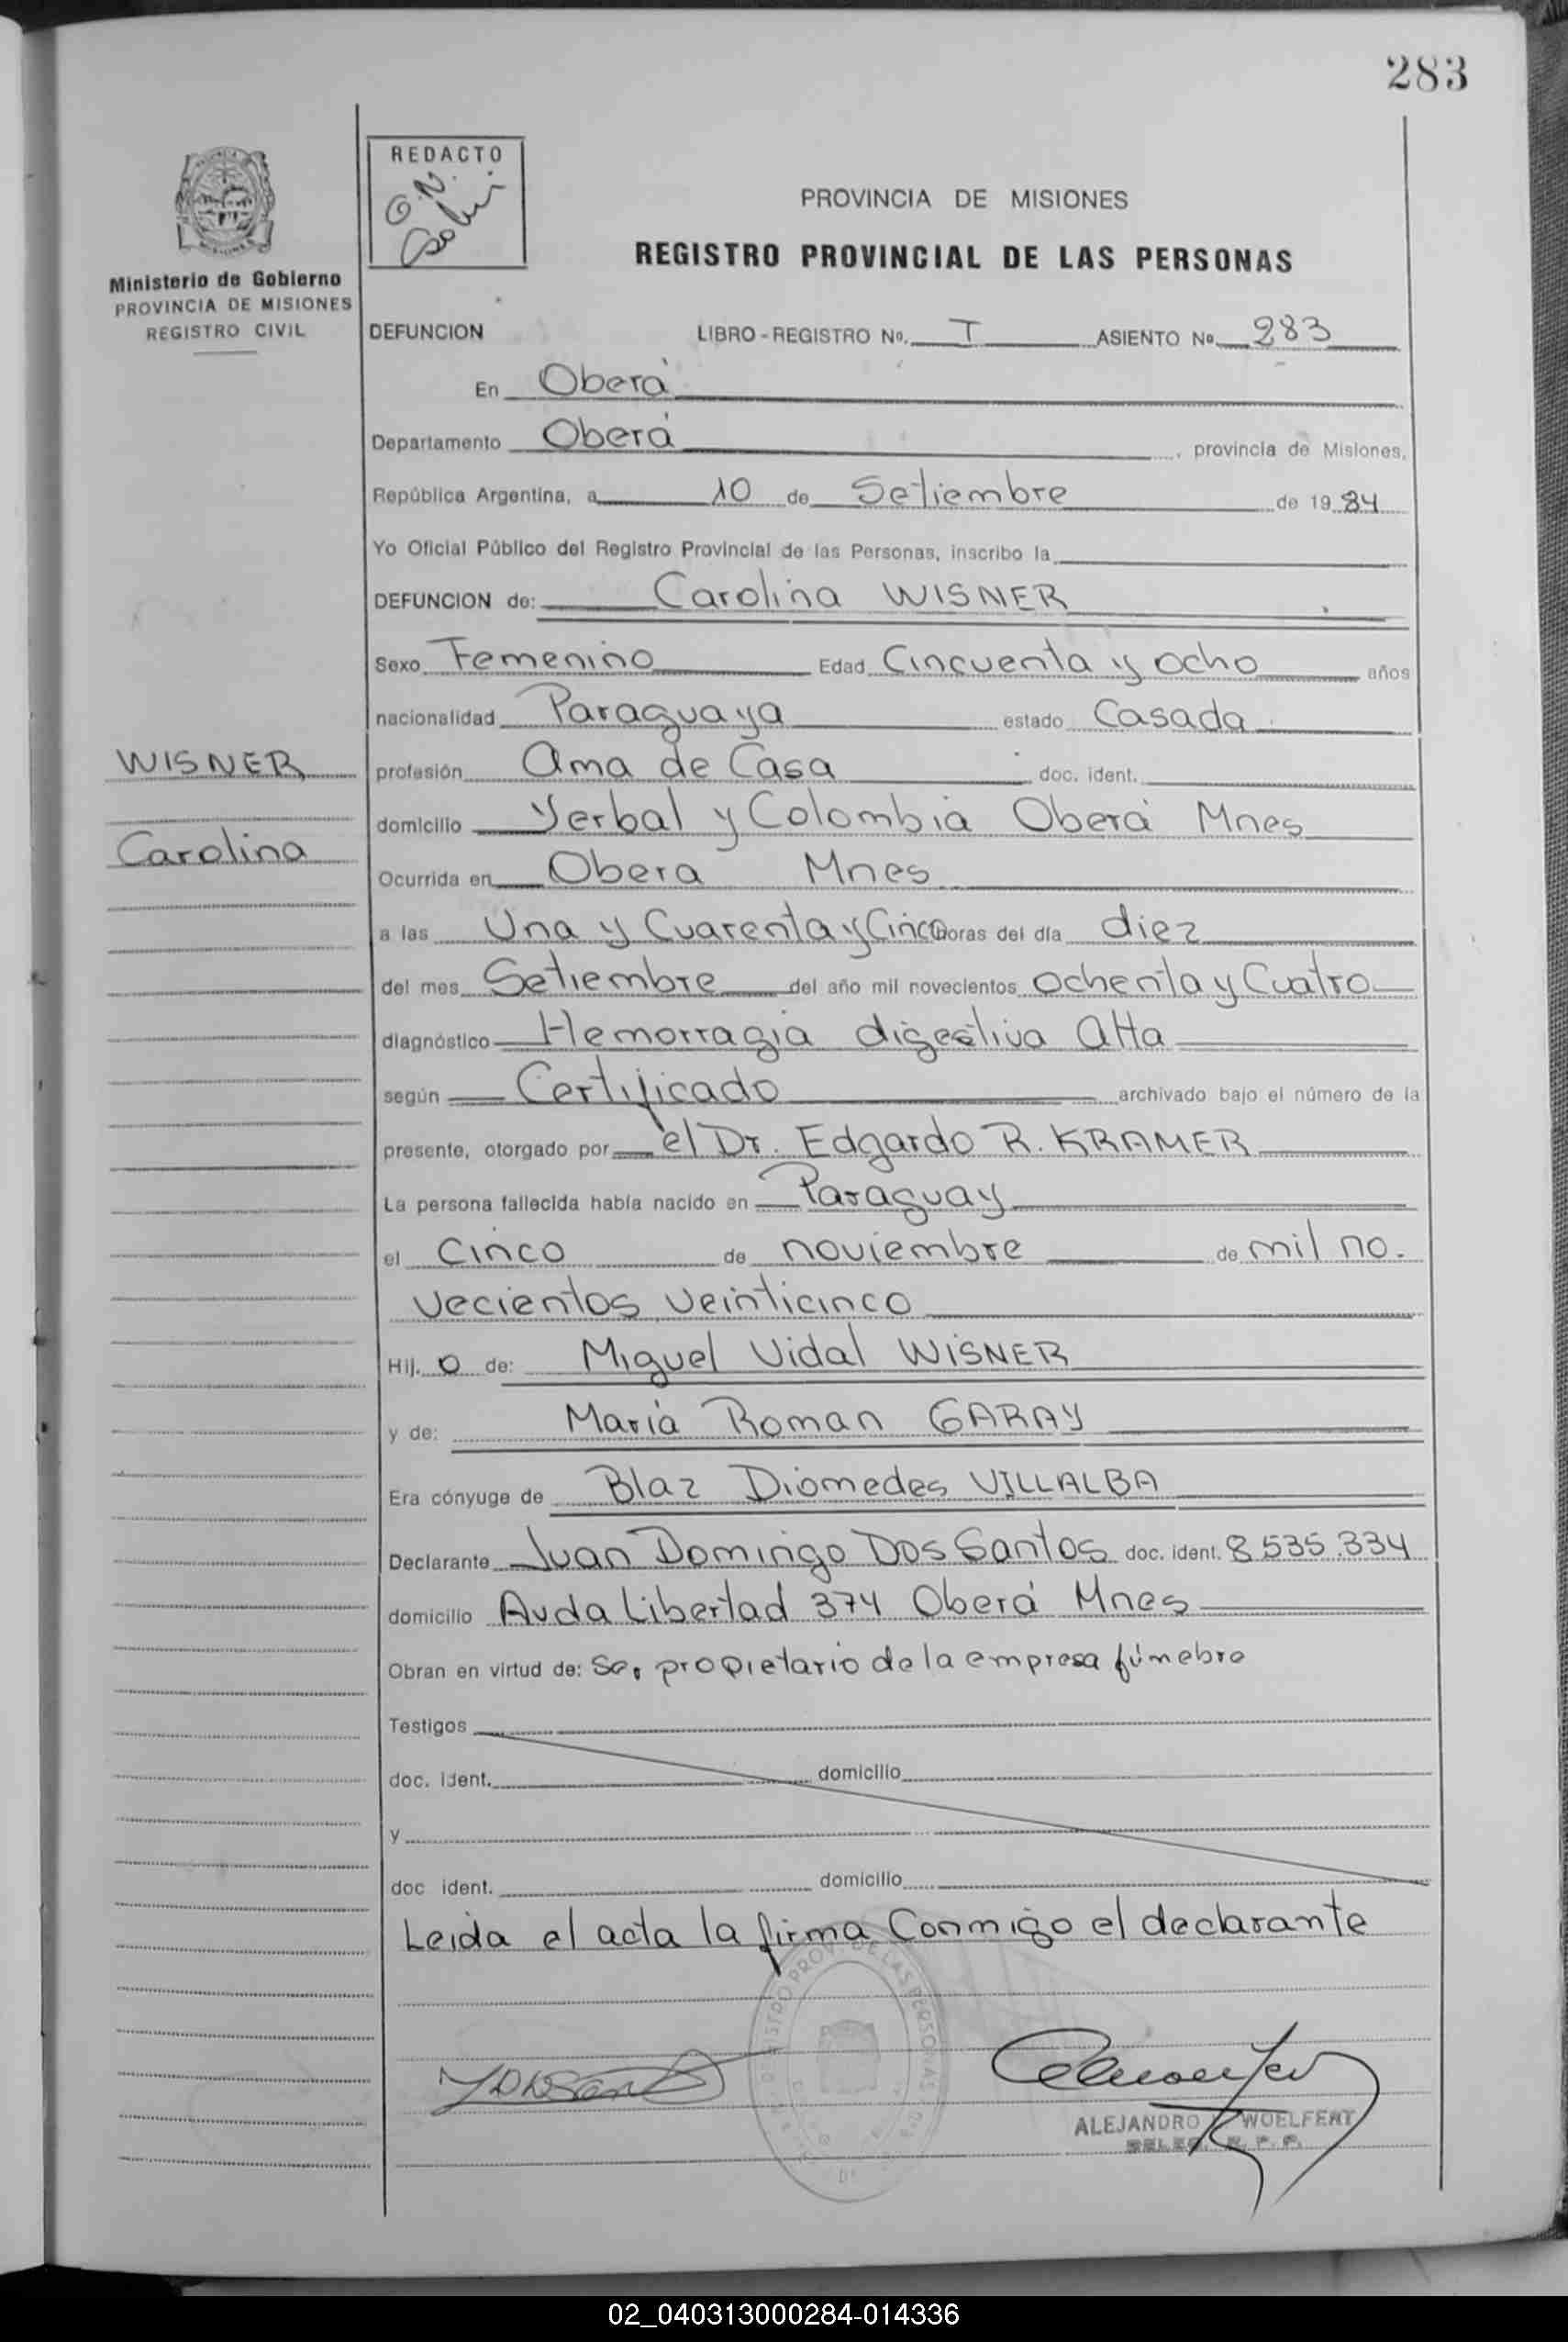 283
REDACTO
PROVINCIA DE MISIONES
REGISTRO PROVINCIAL DE LAS PERSONAS
Ministerio de Gobierno
PROVINCIA DE MISIONES
REGISTRO CIVIL
DEFUNCION LIBRO-REGISTRO No. I ASIENTO No. 283
En Oberá
Departamento Oberá, provincia de Misiones,
República Argentina, a 10 de Setiembre de 1984
Yo Oficial Público del Registro Provincial de las Personas, inscribo la
DEFUNCION de: Carolina WISNER
Sexo Femenino Edad Cincuenta y ocho años
nacionalidad Paraguaya estado Casada
WISNER
profesión Ama de Casa doc. ident.
domicilio Yerbal y Colombia Oberá Mnes
Carolina
Ocurrida en Obera Mnes
a las Una y Cuarenta y Cinco horas del día diez
del mes Setiembre del año mil novecientos ochenta y Cuatro
diagnóstico Hemorragia digestiva Alta
según Certificado archivado bajo el número de la
presente, otorgado por el Dr. Edgardo R. KRAMER
La persona fallecida había nacido en Paraguay
el Cinco de noviembre de mil no.
vecientos veinticinco
Hij. o de: Miguel Vidal WISNER
y de: María Roman GARAY
Era cónyuge de Blaz Diomedes VILLALBA
Declarante Juan Domingo Dos Santos doc. ident. 8.535.334
domicilio Avda Libertad 374 Oberá Mnes
Obran en virtud de: Ser propietario de la empresa fúnebre
Testigos
doc. ident. domicilio
y
doc ident. domicilio
Leida el acta la firma Conmigo el declarante
ALEJANDRO WOELFERT
DELEG. R. P. P.
02_040313000284-014336